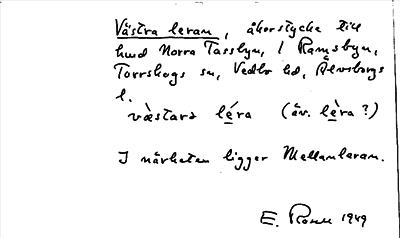 Västra leran, åkerstycke till
hmd Norra Tassbyn, i Ramsbyn,
Torrskogs sn, Vedbo hd, Älvsborgs
l.
væ̀stara léra (äv. lèra?)
I närheten ligger Mellanleran.
E. 1949